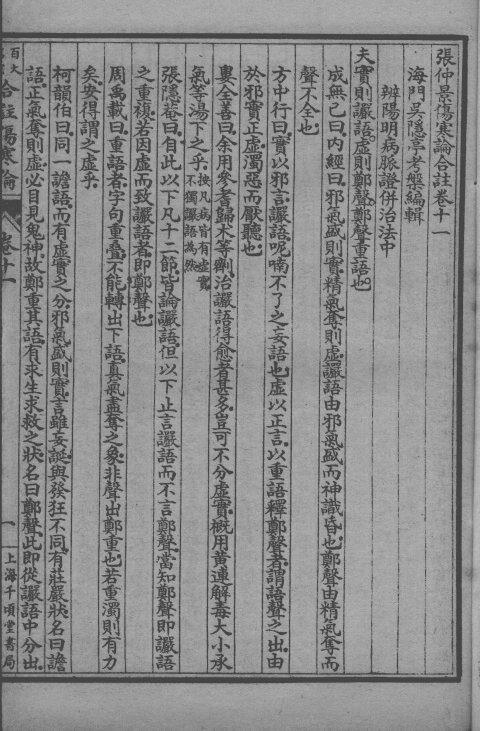 張仲景傷寒論合註卷十一
海門吳隱亭考槃編輯
辨陽明病脈證併治法中
夫實則讝語虛則鄭聲鄭聲重語也。
成無己曰。內經曰。邪氣盛則實。精氣奪則虛。讝語由邪氣盛而神識昏也。鄭聲由精氣奪而
聲不全也。
方中行曰。實以邪言。讝語呢喃不了之妄語也。虛以正言。以重語釋鄭聲者。謂語聲之出。由
於邪實正虛。濁惡而厭聽也。
婁全善曰。余用參耆歸朮等劑治讝語得愈者甚多。豈可不分虛實。概用黃連解毒大小承
氣等湯下之乎。按凡病皆有虛實
不獨讝語為然
張隱菴曰。自此以下凡十二節。皆論讝語。但以下止言讝語而不言鄭聲。當知鄭聲即讝語
之重複。若因虛而致讝語者。即鄭聲也。
周禹載曰。重語者。字句重疊。不能轉出下語。真氣盡奪之象。非聲出鄭重也。若重濁則有力
矣。安得謂之虛乎。
柯韻伯曰。同一譫語。而有虛實之分。邪氣盛則實。言雖妄誕。與發狂不同。有莊嚴狀。名曰譫
語。正氣奪則虛。必目見鬼神。故鄭重其語。有求生求救之狀。名曰鄭聲。此即從讝語中分出。
百大
合註傷寒論
卷十一
一
上海千頃堂書局